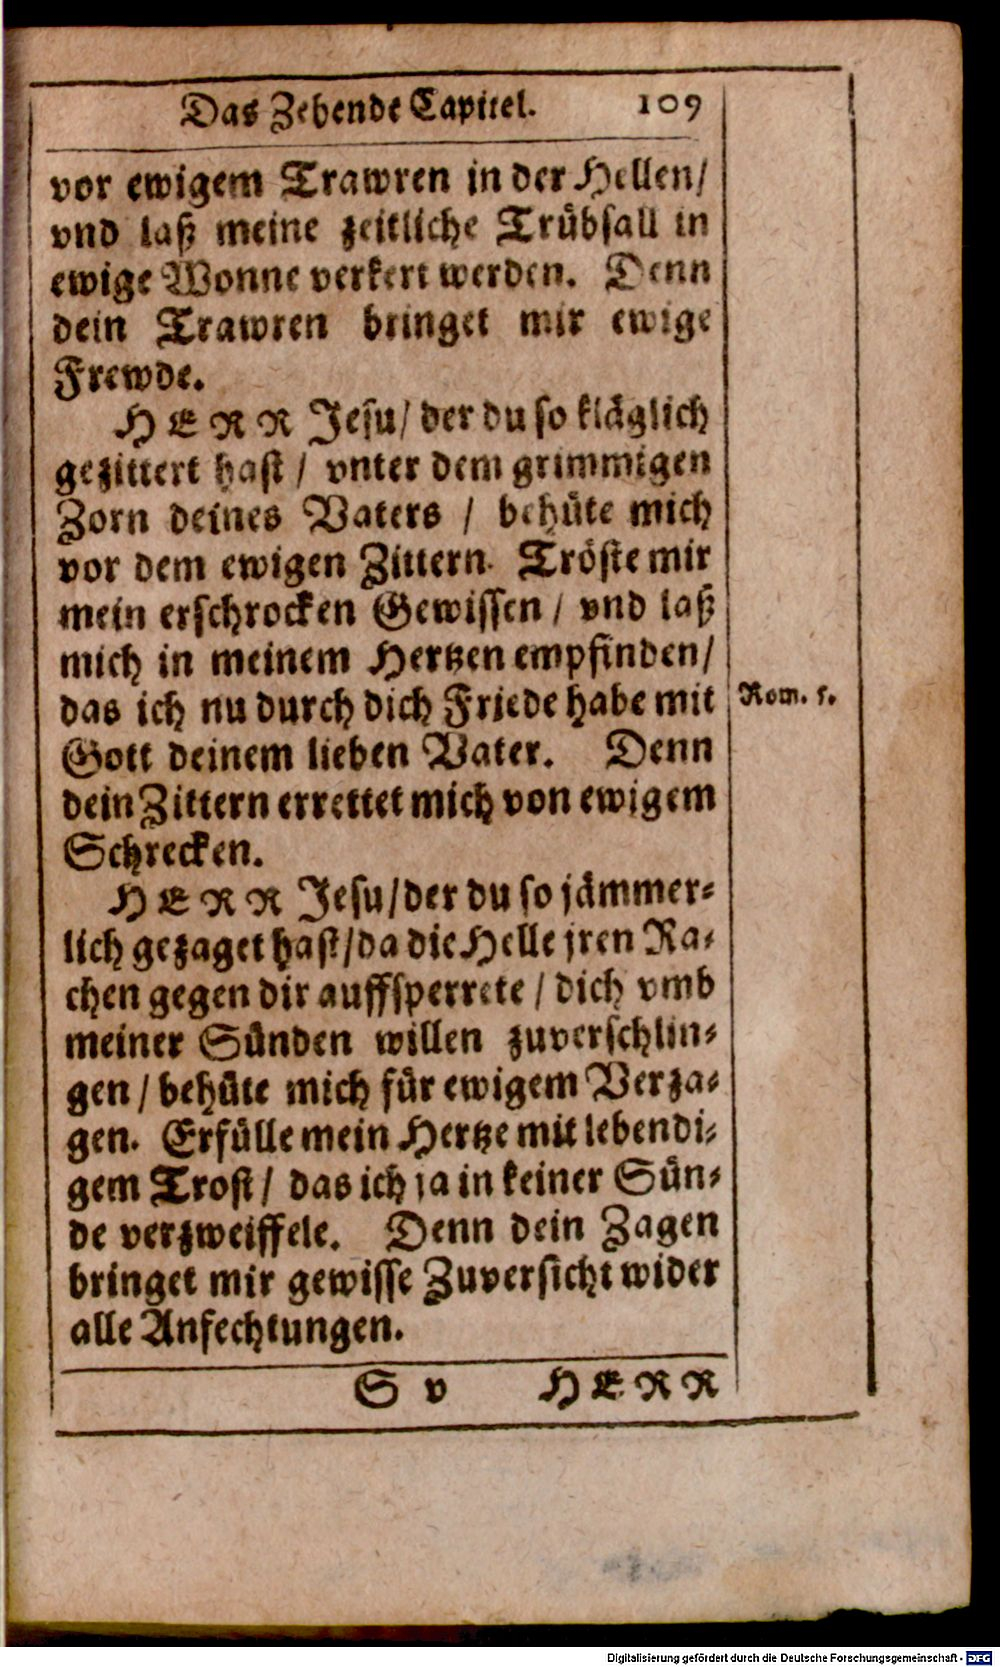 Das Zehende Capitel. 109
vor ewigem Trawren in der Hellen/
vnd laß meine zeitliche Trübsall in
ewige Wonne verkert werden. Denn
dein Trawren bringet mir ewige
Frewde.
HERR Jesu/ der du so kläglich
gezittert hast / vnter dem grimmigen
Zorn deines Vaters / behüte mich
vor dem ewigen Zittern. Tröste mir
mein erschrocken Gewissen / vnd laß
mich in meinem Hertzen empfinden/
das ich nu durch dich Friede habe mit
Rom. 5.
Gott deinem lieben Vater. Denn
dein Zittern errettet mich von ewigem
Schrecken.
HERR Jesu/ der du so jämmer-
lich gezaget hast/ da die Helle jren Ra-
chen gegen dir auffsperrete / dich vmb
meiner Sünden willen zuverschlin-
gen / behüte mich für ewigem Verza-
gen. Erfülle mein Hertze mit lebendi-
gem Trost/ das ich ja in keiner Sün-
de verzweiffele. Denn dein Zagen
bringet mir gewisse Zuversicht wider
alle Anfechtungen.
S v HERR
Digitalisierung gefördert durch die Deutsche Forschungsgemeinschaft - DFG